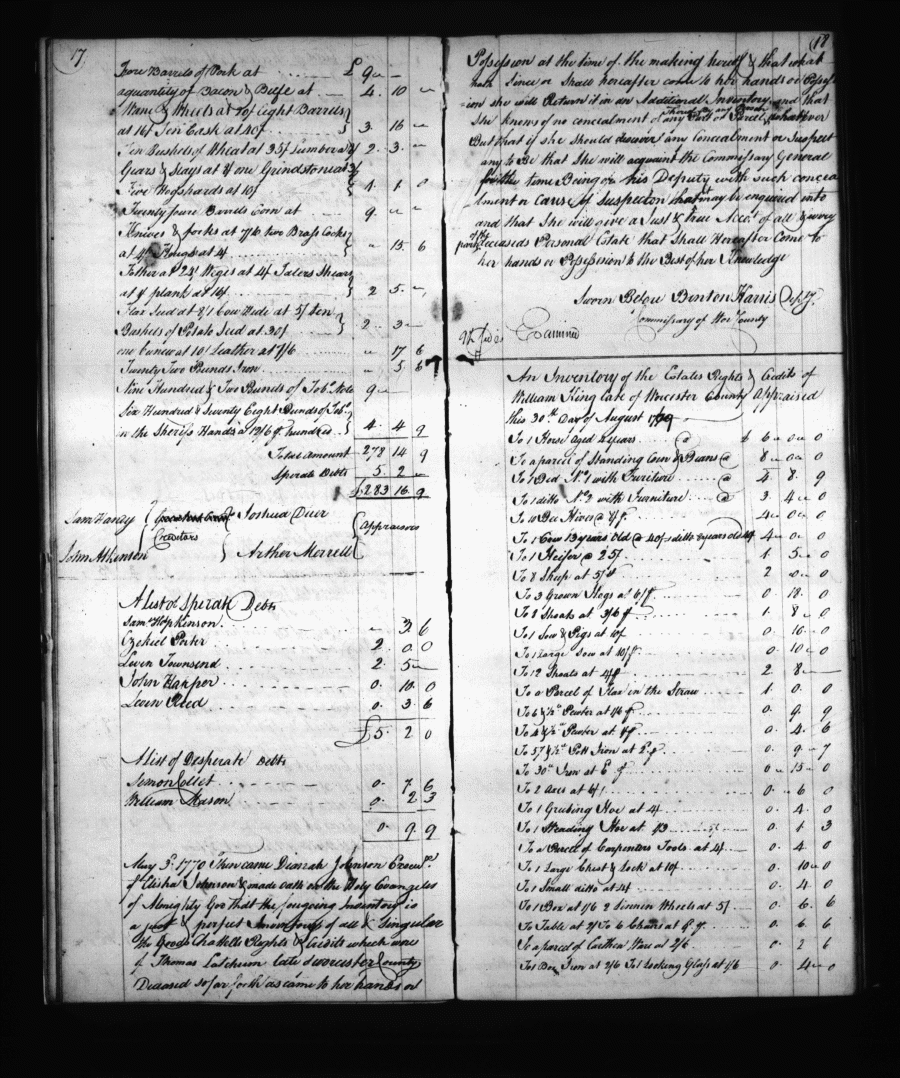 17
Four Barrels of Pork at £ 9 " —
a quantity of Bacon & Beefe at 4. 10 "
& Wheels at 20/ Eight Barrels
at 16/ Ten Cask at 40/ 3. 16 "
Ten Bushels of Wheat at 35/ Lumber at 2. 3. "
Gears & Slays at 2/ one Grindstone at 3/
Five Hogshards at 10/ 1. 1 0
Twenty Barrels Corn at 9. " "
Knives & forks at 7/6 two Brass Cocks
at 4/ at 4 " 15 6
at 24/ at 4/ Talers Shears
at 4/ plank at 16/ 2 5. "
Flax Seed at 8/1 Cow Hide at 5/ ten
Bushels of Potate Seed at 30/ 2. 3 —
one at 10/ Leather at 7/6 " 17 6
Twenty Two Punds Iron " 5 6
Nine Hundred & Two Punds of Tob.o Note 9 "
Six Hundred & Seventy Eight Punds of Tob.o
in the Sherifs Hands at 12/6 P hundred 4. 4 9
Total Amount 278 14 9
Sperate Debts 5. 2 "
£283 16 9
Sam Handy Joshua Duer
Creditors Appraisers
John Atkinson Arthor Merrell
A List of Sperate Debts
Sam.l Hopkinson " 3 6
Ezekiel Porter 2 0 0
Levin Townsend 2. 5 —
John Harper 0. 10. 0
Levin Reed 0. 3. 6
£5. 2 0
A List of Desperate Debts
Semon Collet 0. 7 6
William Mason 0. 2 3
0. 9 9
May 3.d 1770 Then came Dinnah Johnson
of Elisha Johnson & made oath on the Holy Evangeles
of Almighty God that the foregoing Inventory is
a just & perfect Inventory of all & Singular
the Goods Chattells Rights & Credits which were
of Thomas late of Worcester County
Deceased so far forth as came to her hands or
18
Possession at the time of the making hereof & that what
hath Since or Shall hereafter come to her hands or Posess
=ion she will Return it in an Additional Inventory and that
She knows of no concealment of any Part or Parcel whatever
But that if she Should discover any Concealment or Suspect
any to Be that She will acquaint the Commissary General
for the time Being or his Deputy with such concea
lment or cause of Suspecton that may be enquired into
and that She will give a Just & true Acco.t of all & every
part of the Deceaseds Personal Estate that Shall Hereafter Come to
her hands or Possession to the Best of her Knowledge
Sworn Before Benton Harris Dep.ty
Commissary of Wor County
Examined
An Inventory of the Estates Rights & Credits of
William King late of Worcester County Appraised
this 30th Day of August
To 1 Horse aged 2 years @ £ 6 " 0 " 0
To a parcel of Standing Corn & Beans @ 8 " 0 " 0
To 1 Bed N.o 1 with Furniture 4. 8. 9
To 1 ditto N.o 2 with Furniture @ 3. 4 " 0
To Bee Hives @ 4 " 0 " 0
To 1 Cow 13 years Old @ 40/ 1 ditto 2 years old 4 " 0 " 0
To 1 Heifer @ 25/ 1 5 " 0
To 8 Sheep at 5/ 2 " 0 " 0
To 3 Grown Hogs at 6/ 0. 18. 0
To 8 Shoats at 3/6 1. 8 " 0
To 1 Sow & Pigs at 16/ 0. 16 " 0
To 1 Large Sow at 10/ 0. 10 " 0
To 12 Shoats at 4/ 2 8 —
To a Parcel of Flax in the Straw 1. 0. 0
To 6½ lb Pewter at 1/6 0. 9. 9
To 4½ lb Pewter at 1/ 0. 4. 6
To 57½ lb Pott Iron at 2d 0. 9 " 7
To 30 lb Iron at 6 0 " 15 " 0
To 2 Axes at 6/ 0 " 6 " 0
To 1 Grubing Hoe at 4/ 0. 4. 0
To 1 Weading Hoe at 1/3 0. 1 3
To a Parcel of Carpenters Tools at 4/ 0. 4 0
To 1 Large Chest & Lock at 10/ 0. 10 " 0
To 1 Small ditto at 4/ 0. 4 0
To 1 Box at 1/6 2 Linnen Wheels at 5/ 0. 6. 6
To Table at 2/ To 6 Chairs at 0. 6 6
To a parcel of Earthen Ware at 2/6 0. 2 6
To 1 Box Iron at 2/6 To 1 Looking Glass at 1/6 0. 4 " 0